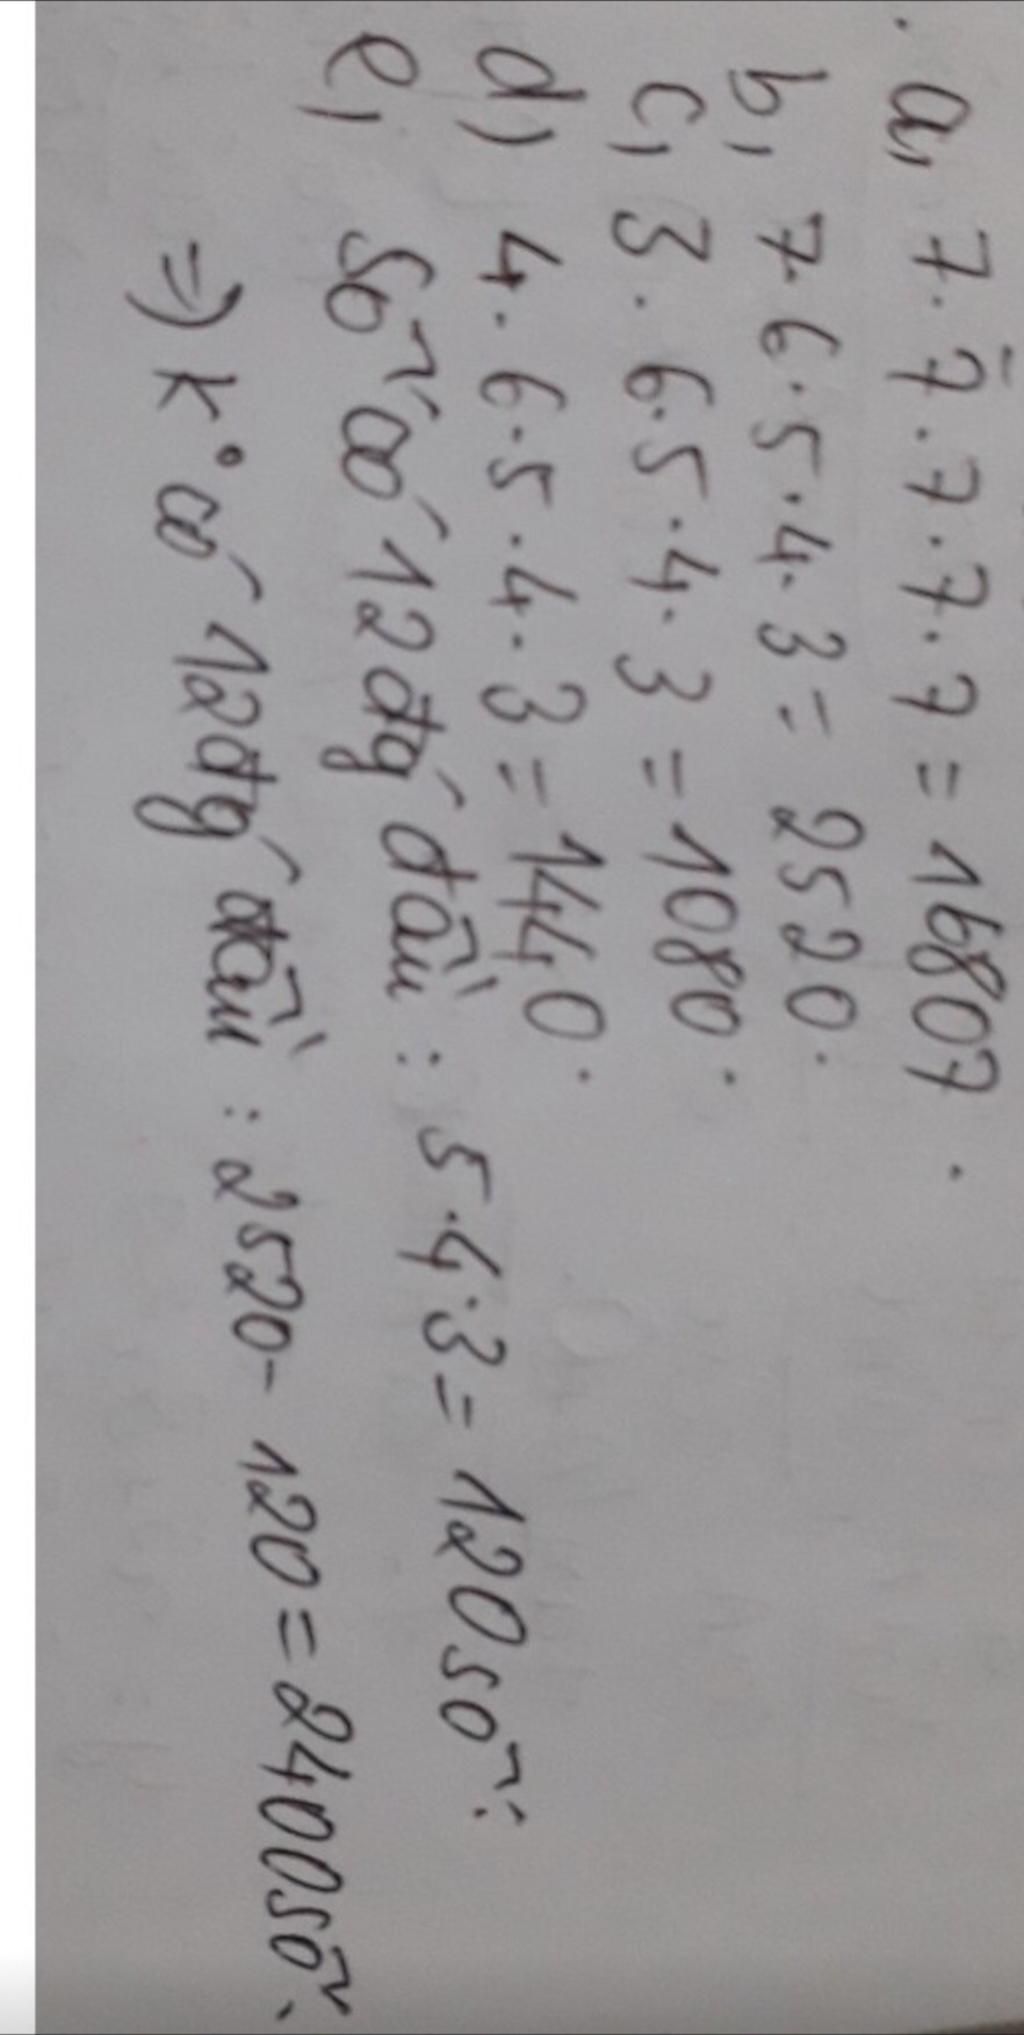 a, 7.7.7.7.7 = 16807.
b, 7.6.5.4.3 = 2520.
c, 3.6.5.4.3 = 1080.
d) 4.6.5.4.3 = 1440.
e, Số có 12 đý đầu : 5.4.3 = 120 số.
=) k° có 12 đý đầu : 2520 - 120 = 2400 số.